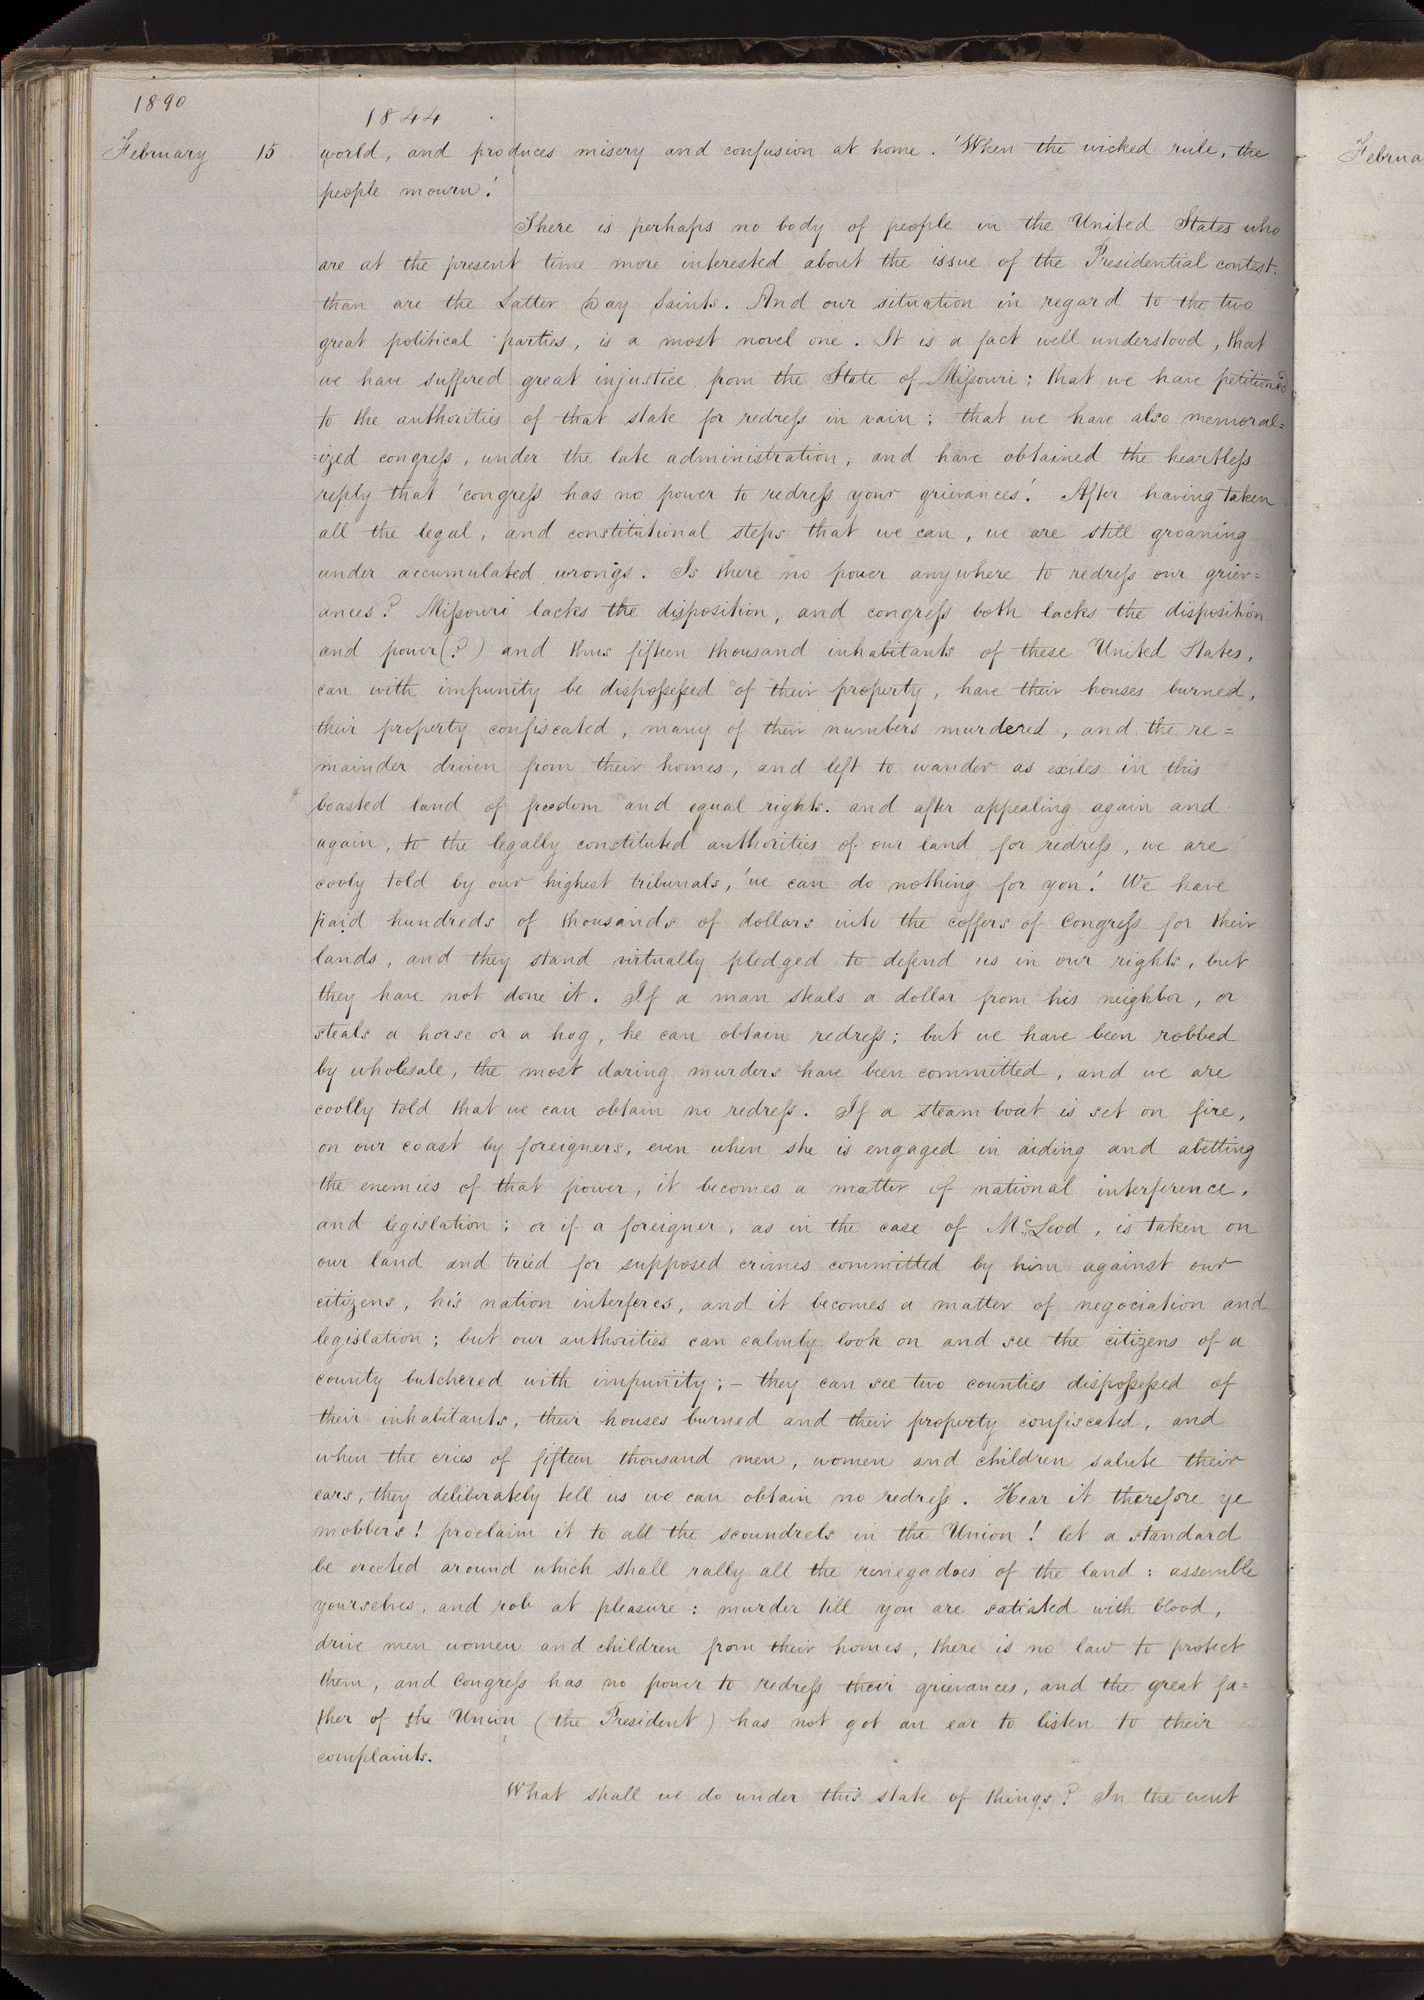 1890
1844
February 15 world, and produces misery and confusion at home. 'When the wicked rule, the
people mourn.'
There is perhaps no body of people in the United States who
are at the present time more interested about the issue of the Presidential contest,
than are the Latter Day Saints. And our situation in regard to the two
great political parties, is a most novel one. It is a fact well understood, that
we have suffered great injustice from the State of Missouri; that we have petitioned
to the authorities of that state for redress in vain; that we have also memoral=
=ized congress, under the late administration, and have obtained the heartless
reply that 'congress has no power to redress your grievances.' After having taken
all the legal, and constitutional steps that we can, we are still groaning
under accumulated wrongs. Is there no power anywhere to redress our griev=
ances? Missouri lacks the disposition, and congress both lacks the disposition
and power(?) and thus fifteen thousand inhabitants of these United States,
can with impunity be dispossessed of their property, have their houses burned,
their property confiscated, many of their numbers murdered, and the re=
mainder driven from their homes, and left to wander as exiles in this
boasted land of freedom and equal rights. and after appealing again and
again, to the legally constituted authorities of our land for redress, we are
cooly told by our highest tribunals, 'we can do nothing for you.' We have
paid hundreds of thousands of dollars into the coffers of Congress for their
lands, and they stand virtually pledged to defend us in our rights, but
they have not done it. If a man steals a dollar from his neighbor, or
steals a horse or a hog, he can obtain redress; but we have been robbed
by wholesale, the most daring murders have been committed, and we are
coolly told that we can obtain no redress. If a steam boat is set on fire,
on our coast by foreigners, even when she is engaged in aiding and abetting
the enemies of that power, it becomes a matter of national interference,
and legislation; or if a foreigner, as in the case of McLeod, is taken on
our land and tried for supposed crimes committed by him against our
citizens, his nation interferes, and it becomes a matter of negociation and
legislation; but our authorities can calmly look on and see the citizens of a
county butchered with impunity;- they can see two counties dispossessed of
their inhabitants, their houses burned and their property confiscated, and
when the cries of fifteen thousand men, women and children salute their
ears, they deliberately tell us we can obtain no redress. Hear it therefore ye
mobbers! proclaim it to all the scoundrels in the Union! let a standard
be erected around which shall rally all the renegadoes of the land: assemble
yourselves, and rob at pleasure: murder till you are satiated with blood,
drive men women and children from their homes, there is no law to protect
them, and Congress has no power to redress their grievances, and the great fa=
ther of the Union (the President) has not got an ear to listen to their
complaints.
What shall we do under this state of things? In the event
Februa